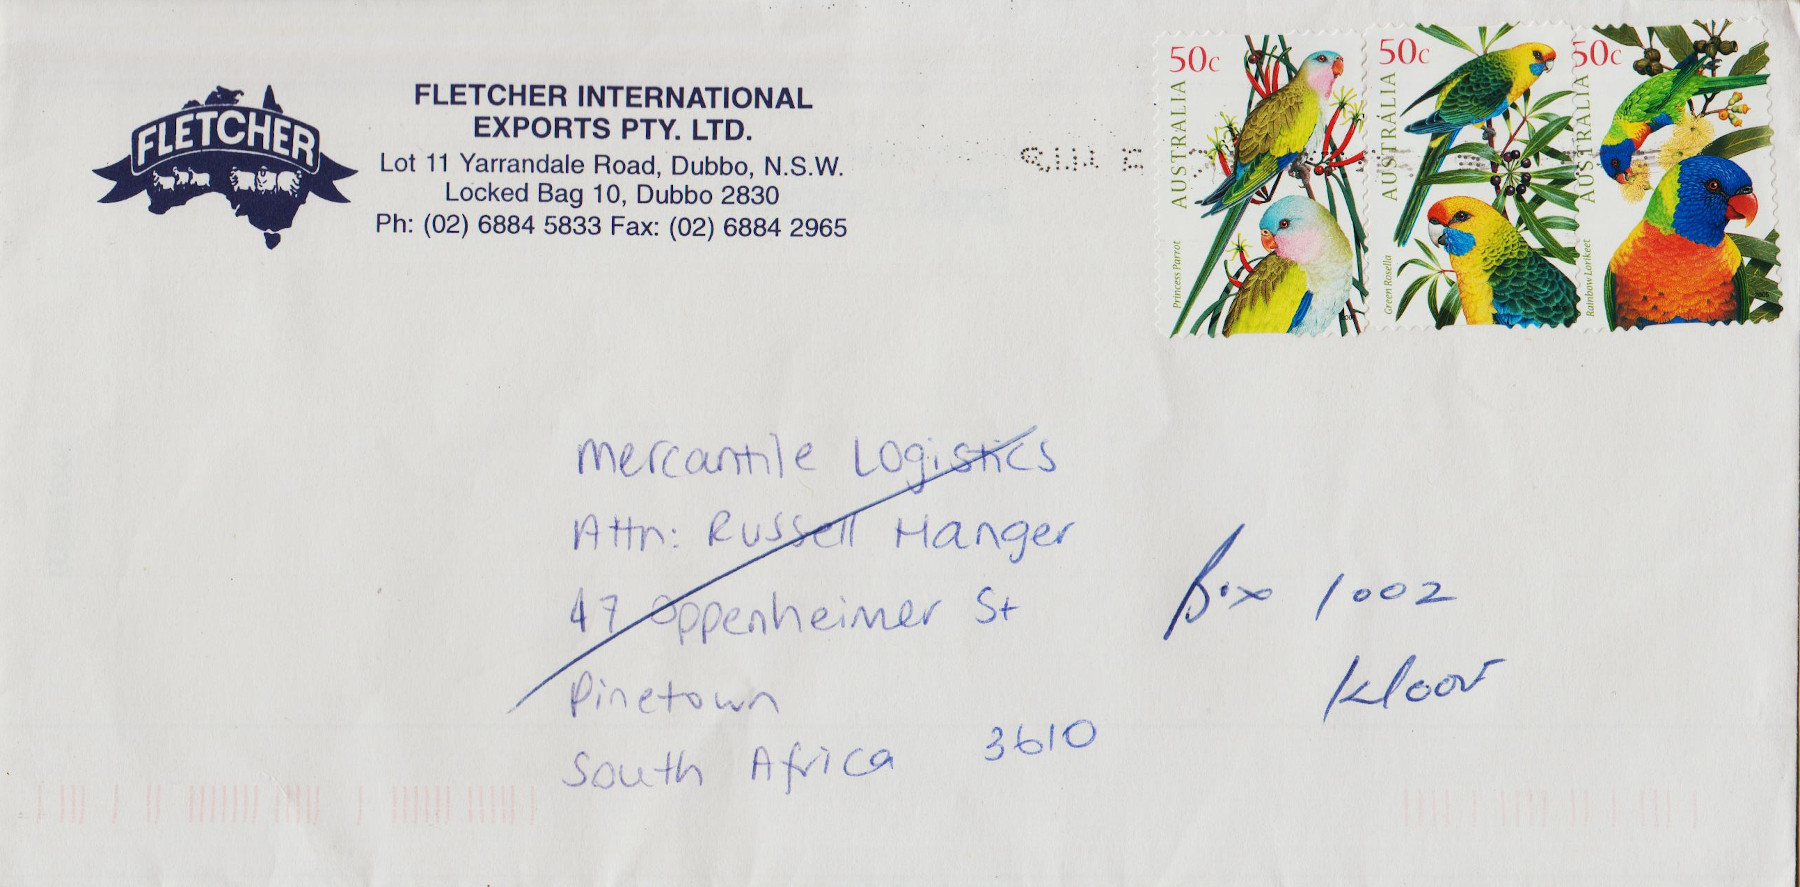 FLETCHER
FLETCHER INTERNATIONAL
EXPORTS PTY. LTD.
Lot 11 Yarrandale Road, Dubbo, N.S.W.
Locked Bag 10, Dubbo 2830
Ph: (02) 6884 5833 Fax: (02) 6884 2965
50c
AUSTRALIA
Princess Parrot
50c
AUSTRALIA
Green Rosella
50c
AUSTRALIA
Rainbow Lorikeet
Mercantile Logistics
Attn: Russell Hanger
47 Oppenheimer St
Pinetown
South Africa 3610
Box 1002
Kloov